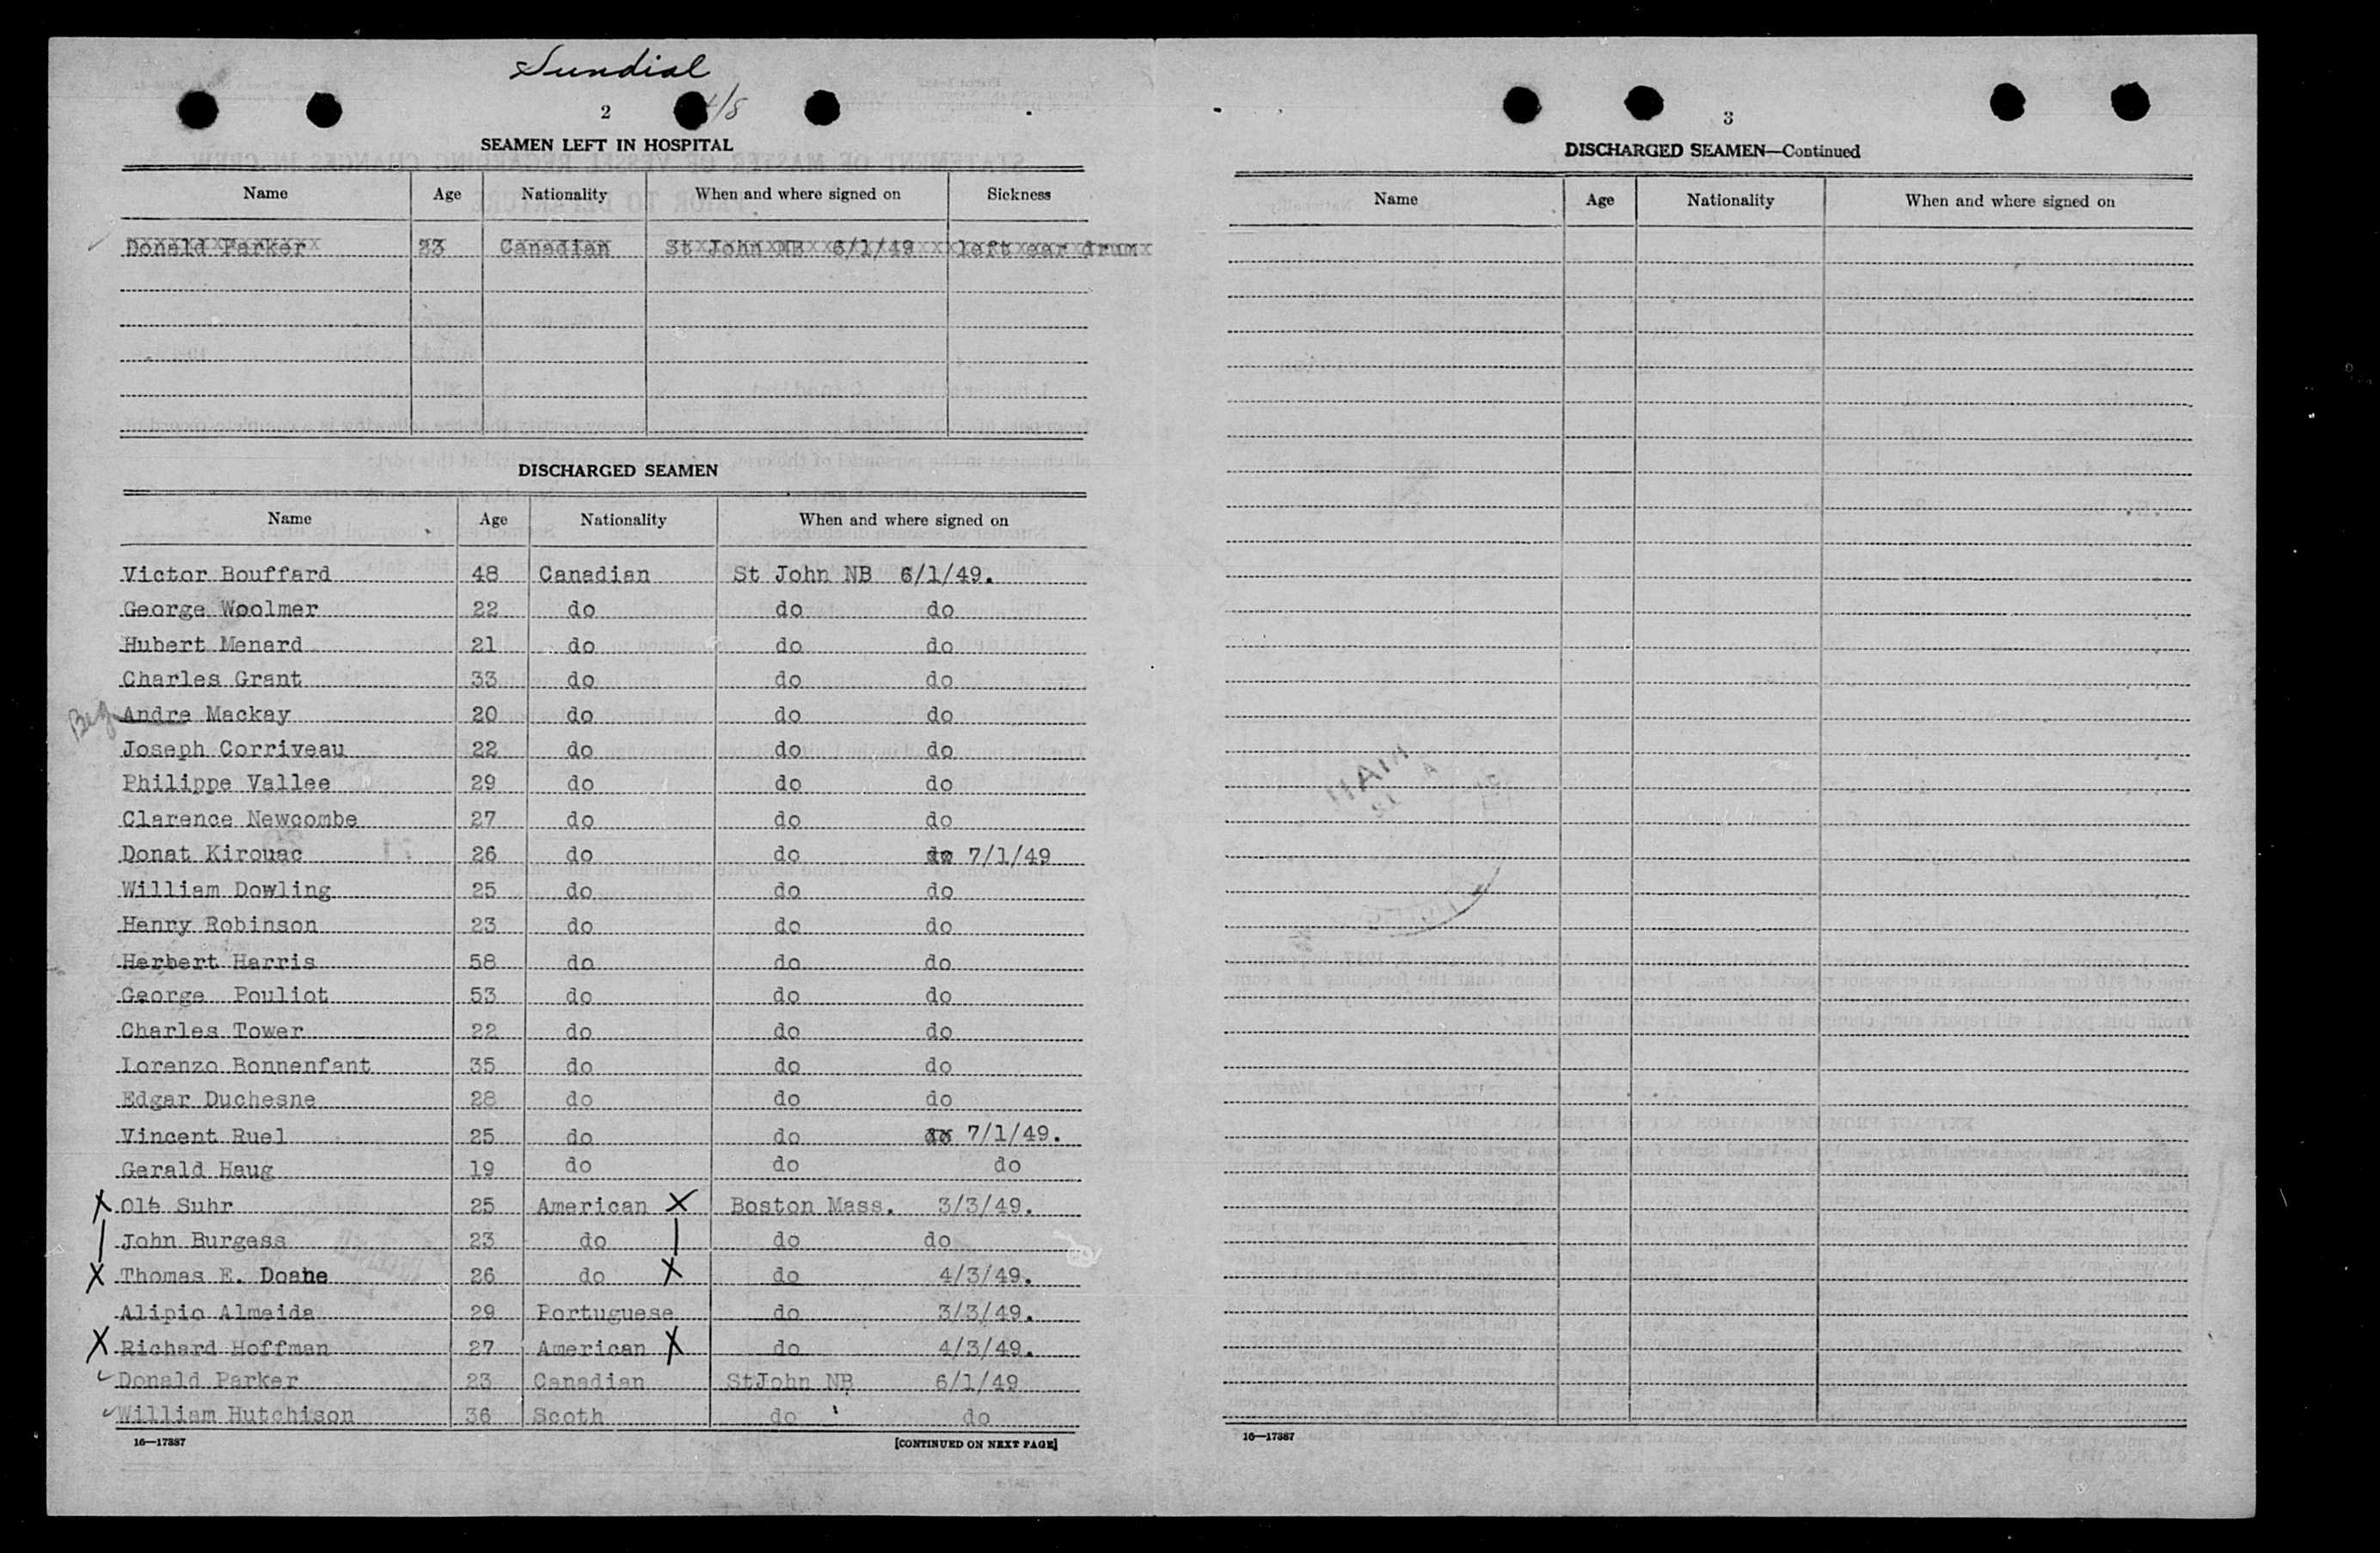 Sundial
4/8
2
SEAMEN LEFT IN HOSPITAL
Name Age Nationality When and where signed on Sickness
Donald Parker 23 Canadian St John NB 6/1/49 left ear drum
DISCHARGED SEAMEN
Name Age Nationality When and where signed on
Victor Bouffard 48 Canadian St John NB 6/1/49.
George Woolmer 22 do do do
Hubert Menard 21 do do do
Charles Grant 33 do do do
Andre Mackay 20 do do do
Joseph Corriveau 22 do do do
Philippe Vallee 29 do do do
Clarence Newcombe 27 do do do
Donat Kirouac 26 do do do 7/1/49
William Dowling 25 do do do
Henry Robinson 23 do do do
Herbert Harris 58 do do do
George Pouliot 53 do do do
Charles Tower 22 do do do
Lorenzo Bonnenfant 35 do do do
Edgar Duchesne 28 do do do
Vincent Ruel 25 do do do 7/1/49.
Gerald Haug 19 do do do
X Ole Suhr 25 American X Boston Mass. 3/3/49.
John Burgess 23 do do do
X Thomas E. Doane 26 do X do 4/3/49.
Alipio Almeida 29 Portuguese do 3/3/49.
X Richard Hoffman 27 American X do 4/3/49.
Donald Parker 23 Canadian StJohn NB 6/1/49
William Hutchison 36 Scoth do do
16—17387 [CONTINUED ON NEXT PAGE]
3
DISCHARGED SEAMEN—Continued
Name Age Nationality When and where signed on
16—17387